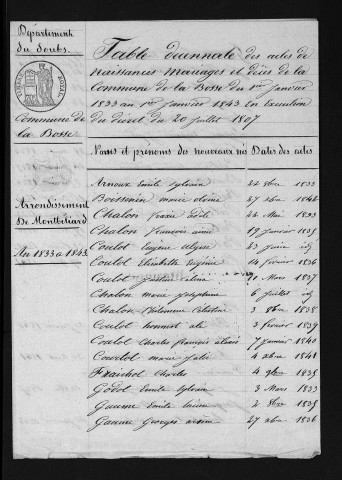 Département
du Doubs.
Table décennale des actes de
naissances mariages et décès de la
Commune de la Bosse du 1er janvier
1833 au 1er janvier 1843 en Execution
du décret du 20 juillet 1807
Commune de
la Bosse
Arrondissement
De Montbéliard
An 1833 a 1843
Noms et prénoms des nouveaux nés Dates des actes
Arnoux Emile Sylvain 22 8bre 1833
Boissenin marie 27 xbre 1842
Chalon 26 Mai 1833
Chalon françois aimé 17 janvier 1835
Coulot Eugène ulysse 23 juin idj
Coulot Elisabeth Eugénie 14 février 1836
Coulot 10 Mars 1837
Chalon marie joséphine 6 juillet idj
Chalon Philomène Célestine 3 8bre 1838
Coulot honnest 3 février 1839
Coulot Charles françois 7 janvier 1840
Courtot marie 4 xbre 1841
Fraichot Charles 4 9bre 1835
Godot Emile Sylvain 3 Mars 1833
Gaume Emile 2 8bre 1835
Gaume Georges 27 xbre 1836